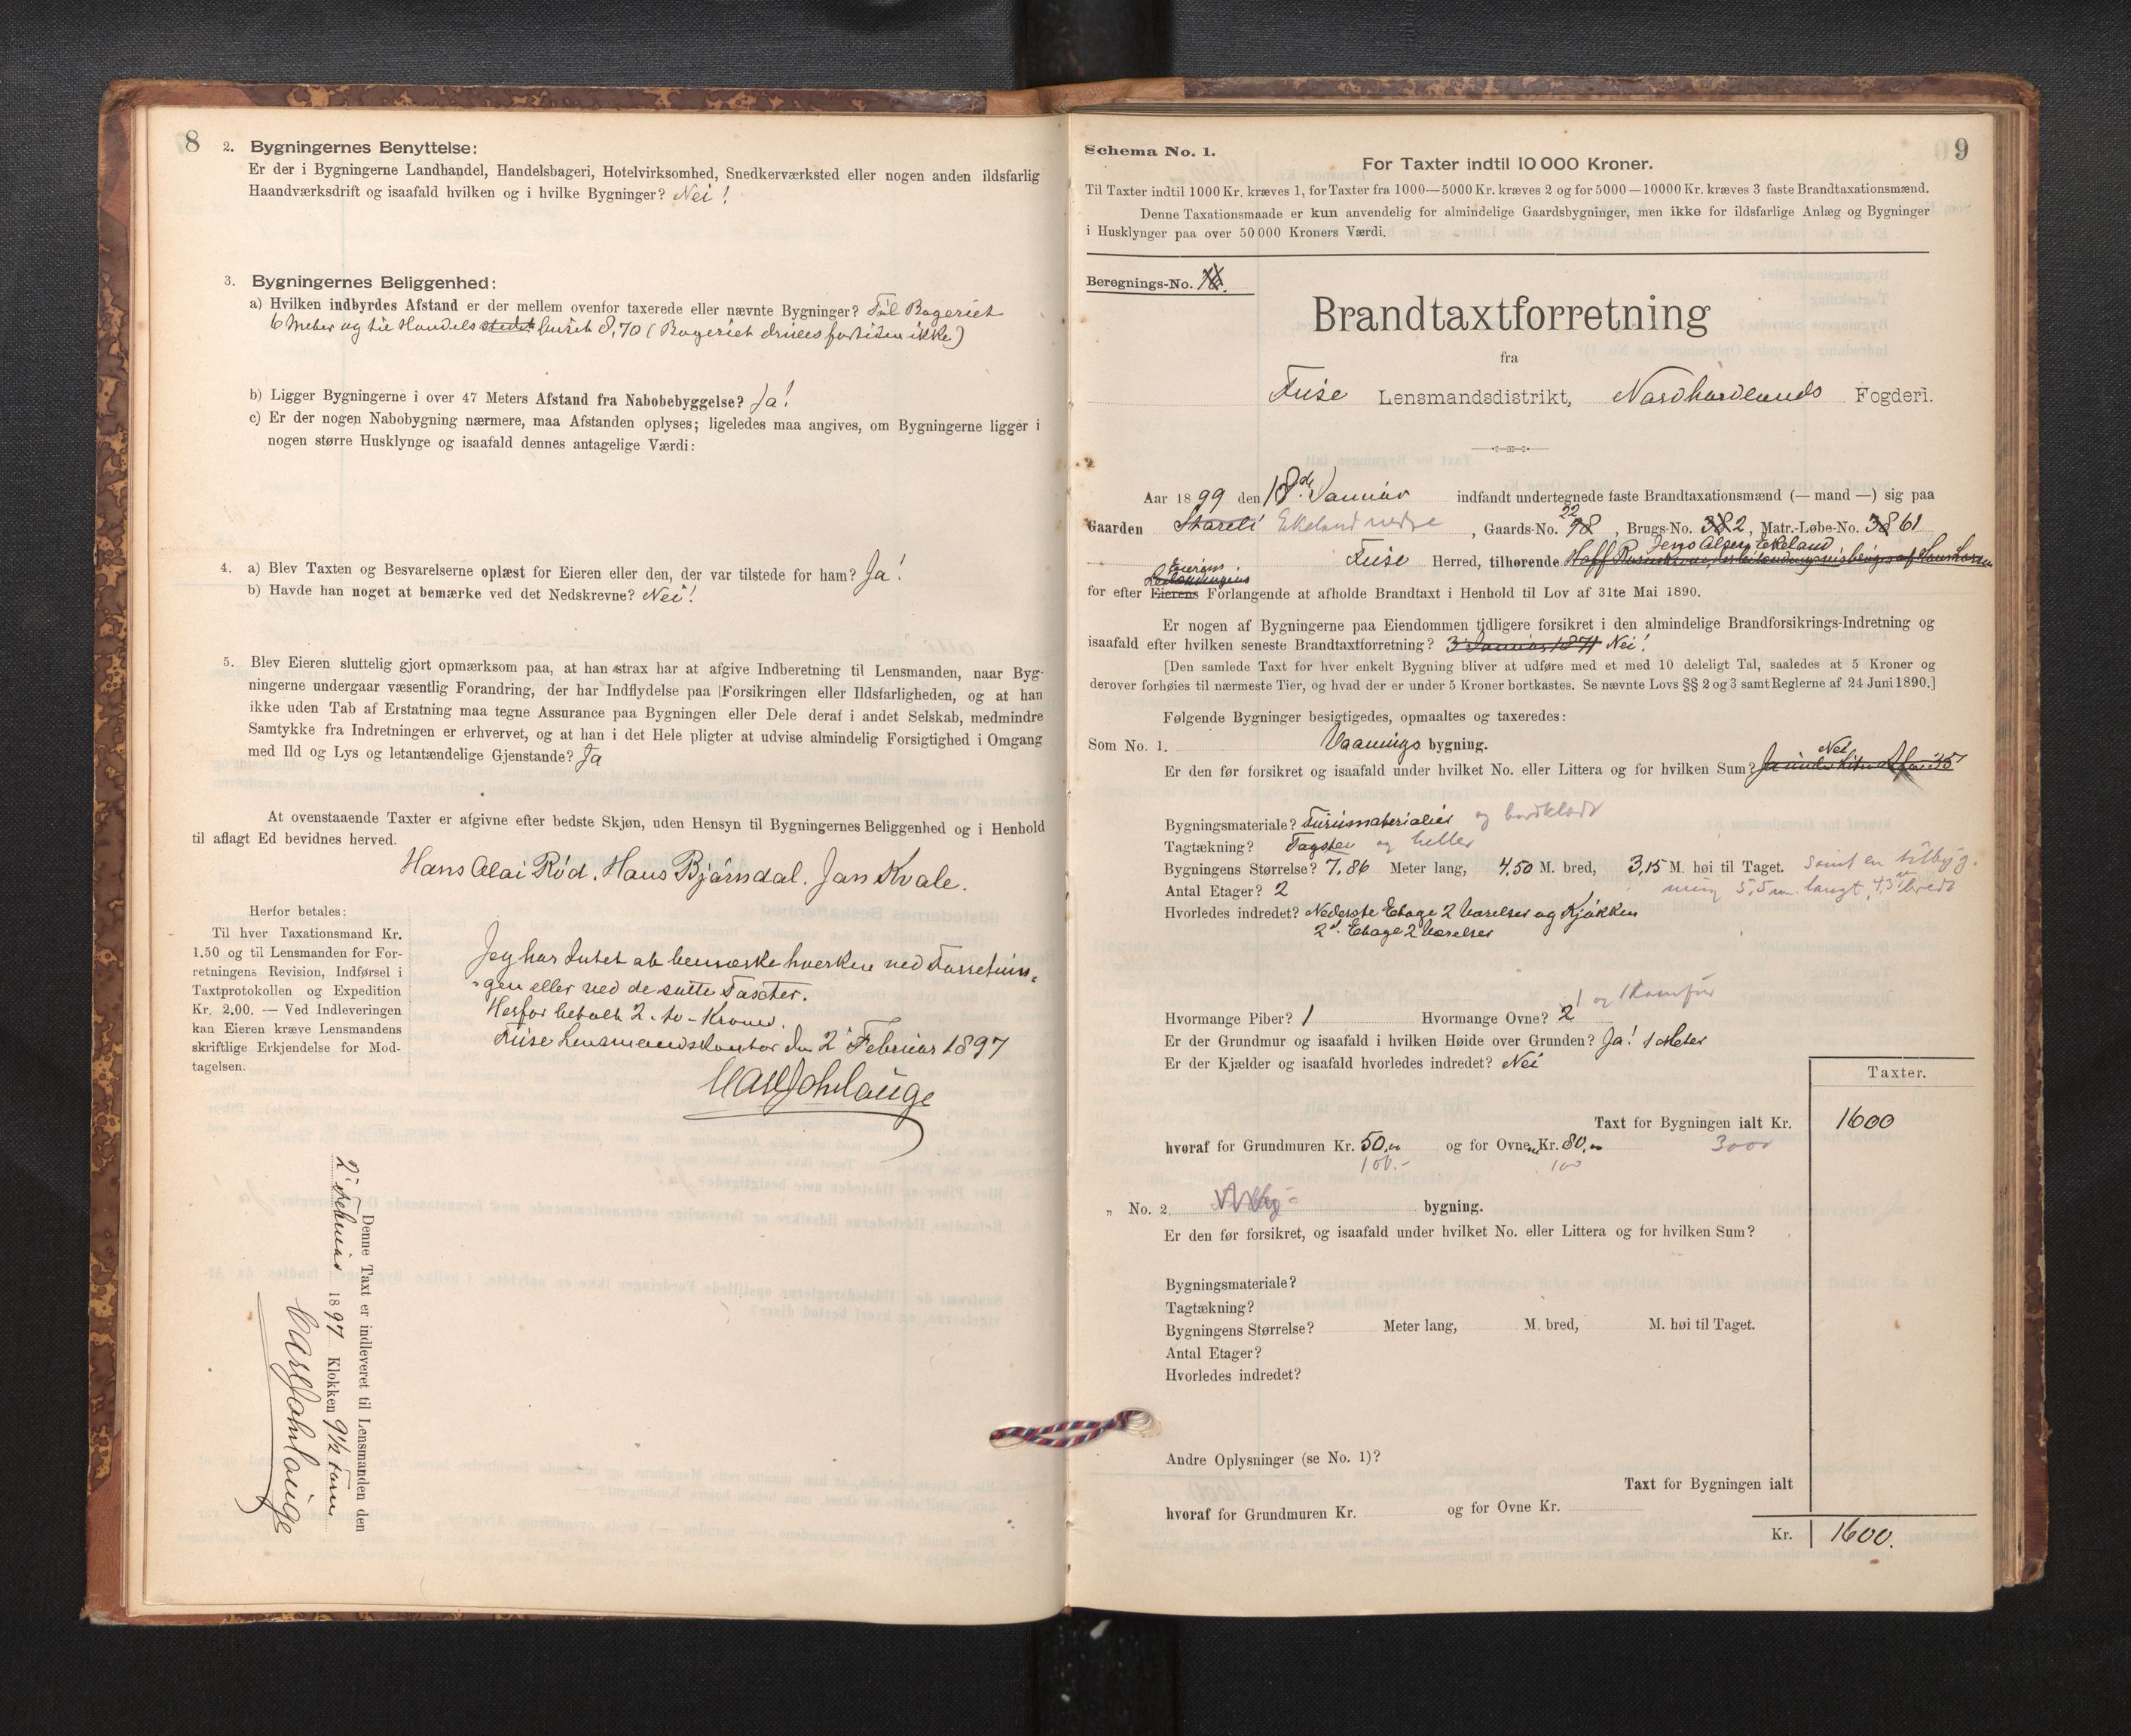 8
2. Bygningernes Benyttelse:
Er der i Bygningerne Landhandel, Handelsbageri, Hotelvirksomhed, Snedkerværksted eller nogen anden ildsfarlig
Haandværksdrift og isaafald hvilken og i hvilke Bygninger? Nei!
3. Bygningernes Beliggenhed:
a) Hvilken indbyrdes Afstand er der mellem ovenfor taxerede eller nævnte Bygninger? Til Bageriet
6 Meter og til Handels stedet huset 8,70 (Bageriet drives fortiden ikke)
b) Ligger Bygningerne i over 47 Meters Afstand fra Nabobebyggelse? Ja!
c) Er der nogen Nabobygning nærmere, maa Afstanden oplyses; ligeledes maa angives, om Bygningerne ligger i
nogen større Husklynge og isaafald dennes antagelige Værdi:
4. a) Blev Taxten og Besvarelserne oplæst for Eieren eller den, der var tilstede for ham? Ja!
b) Havde han noget at bemærke ved det Nedskrevne? Nei!
5. Blev Eieren sluttelig gjort opmærksom paa, at han strax har at afgive Indberetning til Lensmanden, naar Byg-
ningerne undergaar væsentlig Forandring, der har Indflydelse paa Forsikringen eller Ildsfarligheden, og at han
ikke uden Tab af Erstatning maa tegne Assurance paa Bygningen eller Dele deraf i andet Selskab, medmindre
Samtykke fra Indretningen er erhvervet, og at han i det Hele pligter at udvise almindelig Forsigtighed i Omgang
med Ild og Lys og letantændelige Gjenstande? Ja
At ovenstaaende Taxter er afgivne efter bedste Skjøn, uden Hensyn til Bygningernes Beliggenhed og i Henhold
til aflagt Ed bevidnes herved.
Hans Olai Rød. Hans Bjørndal. Jan Kvale.
Herfor betales:
Til hver Taxationsmand Kr.
1.50 og til Lensmanden for For-
retningens Revision, Indførsel i
Taxtprotokollen og Expedition
Kr. 2.00. — Ved Indleveringen
kan Eieren kræve Lensmandens
skriftlige Erkjendelse for Mod-
tagelsen.
Jeg har Intet at bemærke hverken ved Forretnin-
gen eller ved de satte Taxter.
Herfor betalt 2 - to - Kroner.
Fuse Lensmandskontor den 2 Februar 1897
Denne Taxt er indleveret til Lensmanden den
2 Februar 1897 Klokken 9½ Form
9
Schema No. 1.
For Taxter indtil 10 000 Kroner.
Til Taxter indtil 1000 Kr. kræves 1, for Taxter fra 1000—5000 Kr. kræves 2 og for 5000—10000 Kr. kræves 3 faste Brandtaxationsmænd.
Denne Taxationsmaade er kun anvendelig for almindelige Gaardsbygninger, men ikke for ildsfarlige Anlæg og Bygninger
i Husklynger paa over 50 000 Kroners Værdi.
Beregnings-No.
Brandtaxtforretning
fra
Fuse Lensmandsdistrikt, Nordhordlands Fogderi.
Aar 1899 den 18de Januar indfandt undertegnede faste Brandtaxationsmænd (— mand —) sig paa
Gaarden Skareli Ekeland nedre, Gaards-No. 22, Brugs-No. 2, Matr.-Løbe-No. 61
Jens Olsen Ekeland
Fuse Herred, tilhørende
Eierens
for efter Eierens Forlangende at afholde Brandtaxt i Henhold til Lov af 31te Mai 1890.
Er nogen af Bygningerne paa Eiendommen tidligere forsikret i den almindelige Brandforsikrings-Indretning og
isaafald efter hvilken seneste Brandtaxtforretning? 3 Januar 1871 Nei!
[Den samlede Taxt for hver enkelt Bygning bliver at udføre med et med 10 deleligt Tal, saaledes at 5 Kroner og
derover forhøies til nærmeste Tier, og hvad der er under 5 Kroner bortkastes. Se nævnte Lovs §§ 2 og 3 samt Reglerne af 24 Juni 1890.]
Følgende Bygninger besigtigedes, opmaaltes og taxeredes:
Som No. 1. Vaanings bygning.
Nei
Er den før forsikret og isaafald under hvilket No. eller Littera og for hvilken Sum?
Bygningsmateriale? Furumaterialier og bordklædt
Tagtækning? Tagsten og heller
Bygningens Størrelse? 7,86 Meter lang, 4,50 M. bred, 3,15 M. høi til Taget. samt en tilbyg-
ning 5,5 m. langt, 4,3 m bredt
Antal Etager? 2
Hvorledes indredet? Nederste Etage 2 Værelser og Kjøkken
2d. Etage 2 Værelser
1 og 1 Komfur
Hvormange Piber? 1 Hvormange Ovne? 2
Er der Grundmur og isaafald i hvilken Høide over Grunden? Ja! 1 Meter
Er der Kjælder og isaafald hvorledes indredet? Nei
Taxter.
Taxt for Bygningen ialt Kr. 1600
hvoraf for Grundmuren Kr. 50,00 og for Ovnene Kr. 80,00 3000
100.- 100
„ No. 2. bygning.
Er den før forsikret, og isaafald under hvilket No. eller Littera og for hvilken Sum?
Bygningsmateriale?
Tagtækning?
Bygningens Størrelse? Meter lang, M. bred, M. høi til Taget.
Antal Etager?
Hvorledes indredet?
Andre Oplysninger (se No. 1)?
Taxt for Bygningen ialt
hvoraf for Grundmuren Kr. og for Ovne Kr.
Kr. 1600.